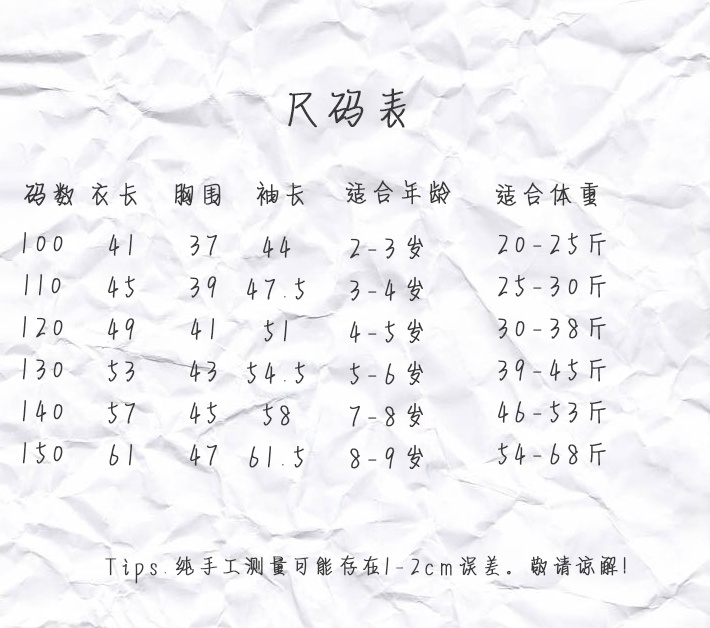 尺码表
码数 衣长 胸围 袖长 适合年龄 适合体重
100 41 37 44 2-3岁 20-25斤
110 45 39 47.5 3-4岁 25-30斤
120 49 41 51 4-5岁 30-38斤
130 53 43 54.5 5-6岁 39-45斤
140 57 45 58 7-8岁 46-53斤
150 61 47 61.5 8-9岁 54-68斤
Tips.纯手工测量可能存在1-2cm误差。敬请谅解!